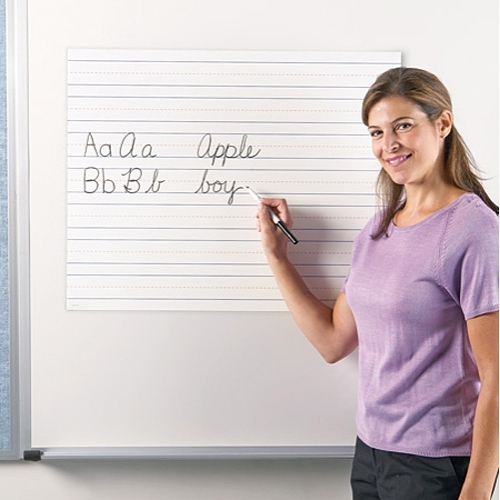 Aa Aa Apple
Bb Bb boy